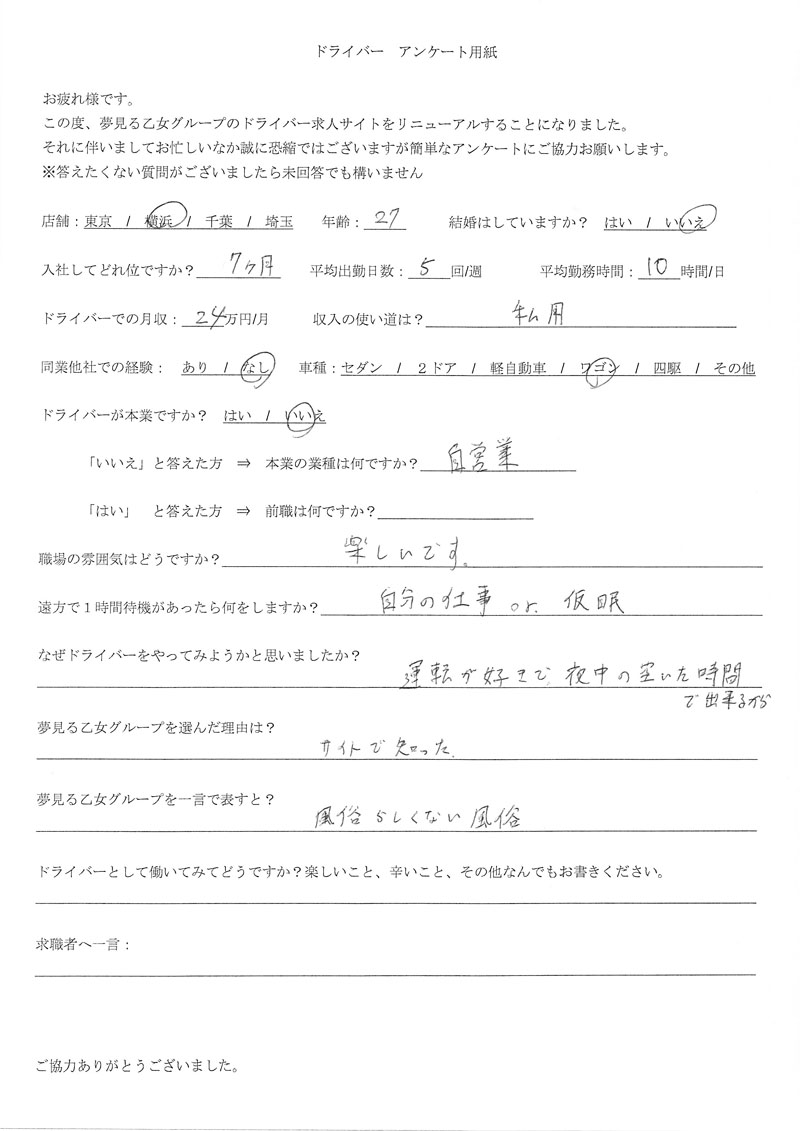 ドライバー　アンケート用紙
お疲れ様です。
この度、夢見る乙女グループのドライバー求人サイトをリニューアルすることになりました。
それに伴いましてお忙しいなか誠に恐縮ではございますが簡単なアンケートにご協力お願いします。
※答えたくない質問がございましたら未回答でも構いません
店舗：東京　/　横浜　/　千葉　/　埼玉　　年齢：27　　結婚はしていますか？　はい　/　いいえ
入社してどれ位ですか？ 7ヶ月　　平均出勤日数： 5 回/週　　平均勤務時間： 10 時間/日
ドライバーでの月収： 24万円/月　　収入の使い道は？ 私用
同業他社での経験：　あり　/　なし　　車種：セダン　/　２ドア　/　軽自動車　/　ワゴン　/　四駆　/　その他
ドライバーが本業ですか？　はい　/　いいえ
「いいえ」と答えた方　⇒　本業の業種は何ですか？ 自営業
「はい」　と答えた方　⇒　前職は何ですか？
職場の雰囲気はどうですか？ 楽しいです。
遠方で１時間待機があったら何をしますか？ 自分の仕事 or. 仮眠
なぜドライバーをやってみようかと思いましたか？
運転が好きで、夜中の空いた時間
で出来るから
夢見る乙女グループを選んだ理由は？
サイトで知った.
夢見る乙女グループを一言で表すと？
風俗らしくない風俗
ドライバーとして働いてみてどうですか？楽しいこと、辛いこと、その他なんでもお書きください。
求職者へ一言：
ご協力ありがとうございました。